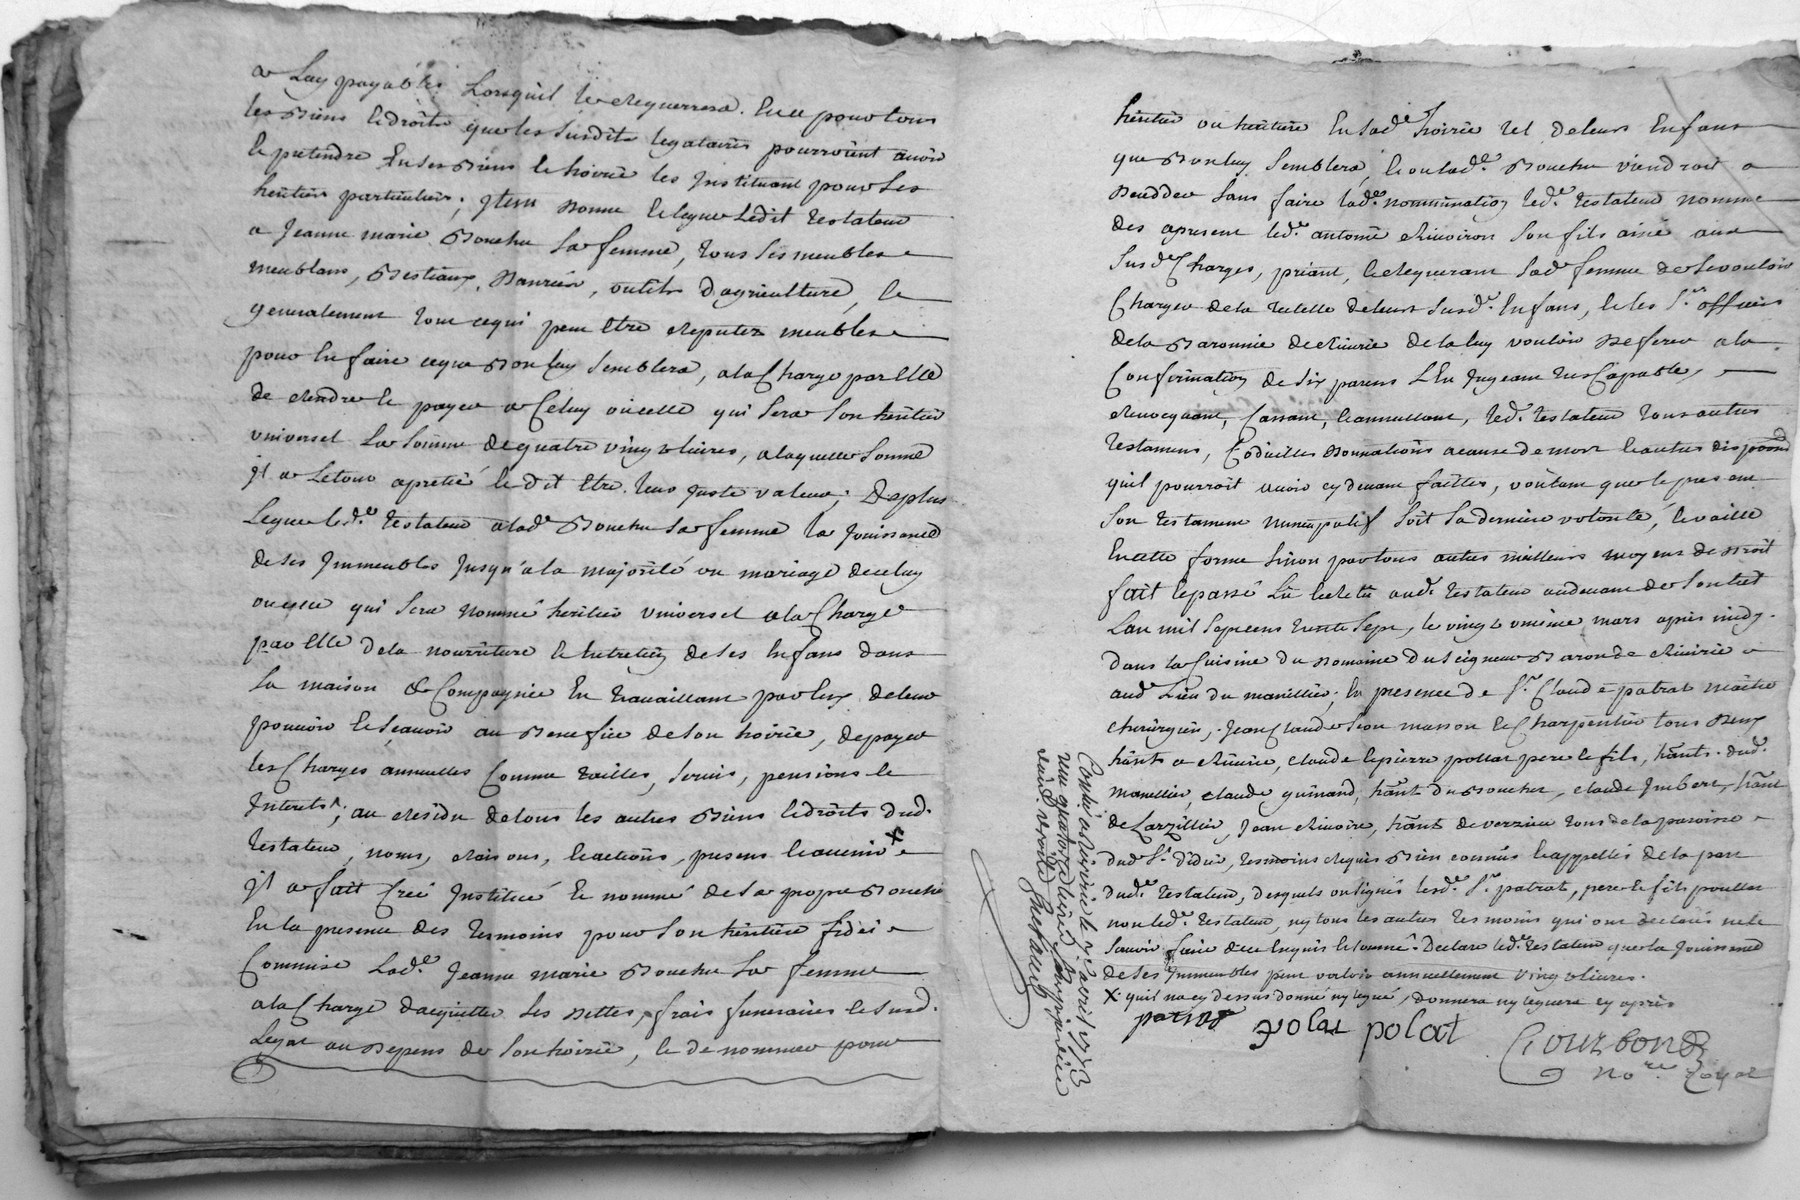 a Luy payables Lorsquil le requerrera. Et ce pour tous
les Biens et droits que les susdits legataires pourroient avoir
et pretendre En ses Biens et hoirie les Instituant pour ses
heritiers particuliers; Item Donne et legue Ledit testateur
a Jeanne marie Bouchu sa femme, tous ses meubles
meublans, Bestiaux, Danrées, outils d'agriculture, et
generalement tout cequi peut Etre reputez meubles
pour En faire ceque Bon luy semblera, ala Charge par Elle
de rendre et payer a Celuy ou celle qui sera son heritier
universel La somme de quatre vingt livres, alaquelle somme
il a Letout apretié et dit Etre leur juste valeur; De plus
Legue led.e testateur a lad.e Bouchu sa femme la jouissance
de ses Immeubles Jusqu'a la majorité ou mariage de celuy
ou celle qui sera nommé heritier universel ala Charge
par Elle dela nourriture et Entretien de ses Enfans dans
sa maison & Compagnie En travaillant par Eux de leur
pouvoir et scavoir au Benefice de son hoirie, de payer
les Charges annuelles Comme tailles, servis, pensions et
Interets; au residu de tous les autres Biens et droits dud.
testateur, noms, raisons, et actions, presens et avenir X
il a fait Creé Institué Et nommé de sa propre Bouche
En la presence des tesmoins pour son héritiere fidei
Commise Lad.e Jeanne marie Bouchu sa femme
ala Charge d'acquitter ses Dettes, frais funeraires et susd.
Legat au Depens de son hoirie, et de nommer pour
héritier ou héritiere En sad.e hoirie tel de leurs Enfans
que Bon luy semblera, et ou lad.e Bouchu viendroit a
Deceder sans faire lad.e nommination led.e testateur nomme
des apresent led.e antoine Rivoiron son fils ainé aux
susd.e Charges, priant, et requerant sad.e femme de se vouloir
Charger dela tutelle de leurs susd.e Enfans, et les S.rs officiers
dela Baronnie de Riverie de la luy vouloir Deferer ala
Confirmation de six parens s'En jugeant tres Capable,
revocquant, Cassant, et annullant, led.e testateur tous autres
testamens, Codicilles Donnations acause de mort et autres disposons
quil pourroit avoir cy devant faittes, voulant que le present
son testament nuncupatif soit sa derniere volonté, et vaille
En cette forme sinon par tous autres meilleurs moyens de droit
fait et passé Lû et relû aud.e testateur audevant de son lict
Lan mil sept cens trente sept, le vingt unieme mars après midy.
dans la Cuisine du Domaine du seigneur Baron de Riverie
aud.e Lieu du manillier; En presence de S.r Claude patrat maitre
chirurgien, Jean Claude masson et Charpentier tous Deux
hãnts a Riverie, claude et pierre pollat pere et fils, hãnts dud.e
manillier, claude guinand, hãnt du Boucher, claude Imbert, hãnt
de Larzillier, Jean Rivoire, hãnt de verzieu tous de la paroisse
dud. S.t didier, tesmoins requis Bien connûs et appellés de la part
dud.e testateur, desquels ont signés lesd.e S.r patrat, pere et fils pollat
non led.e testateur, ny tous les autres tesmoins qui ont declaré ne le
scavoir faire de ce Enquis et sommé. Declare led.e testateur que la Jouissance
de ses Immeubles peut valoir annuellement vingt livres.
X quil na cy dessus donné ny legué, donnera ny leguera cy après
patrat polat polat Gourbon
No.re Royal
Con.le a Riverie le avril 1773